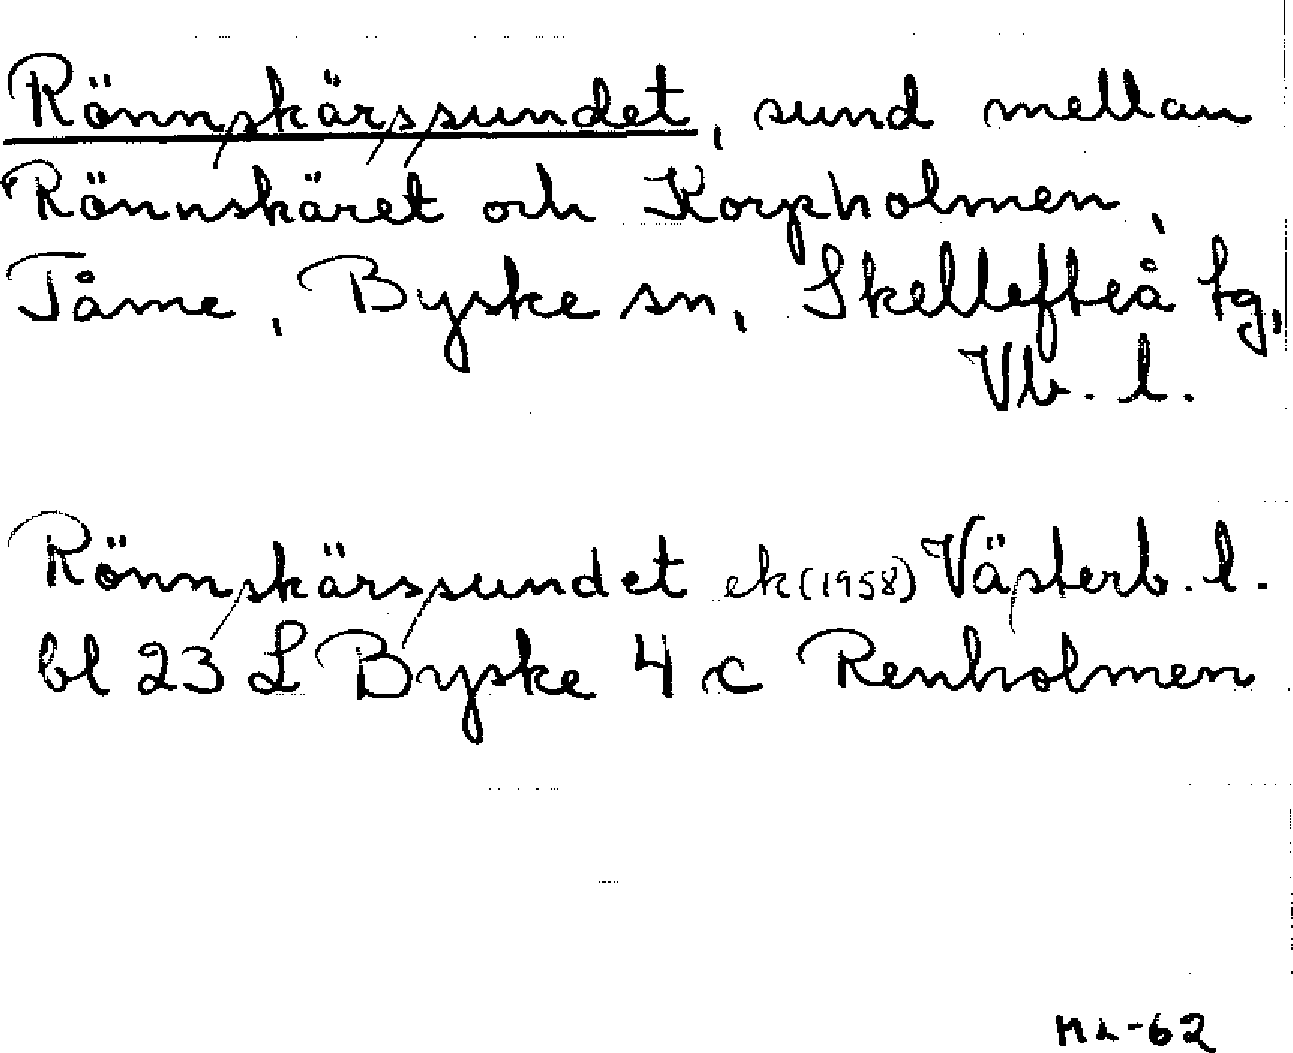 Rönnskärssundet, sund mellan
Rönnskäret och Korpholmen,
Tåme, Byske sn, Skellefteå tg,
Vb. l.
Rönnskärssundet ek (1958) Västerb. l.
bl 23 L Byske 4 c Renholmen
-62